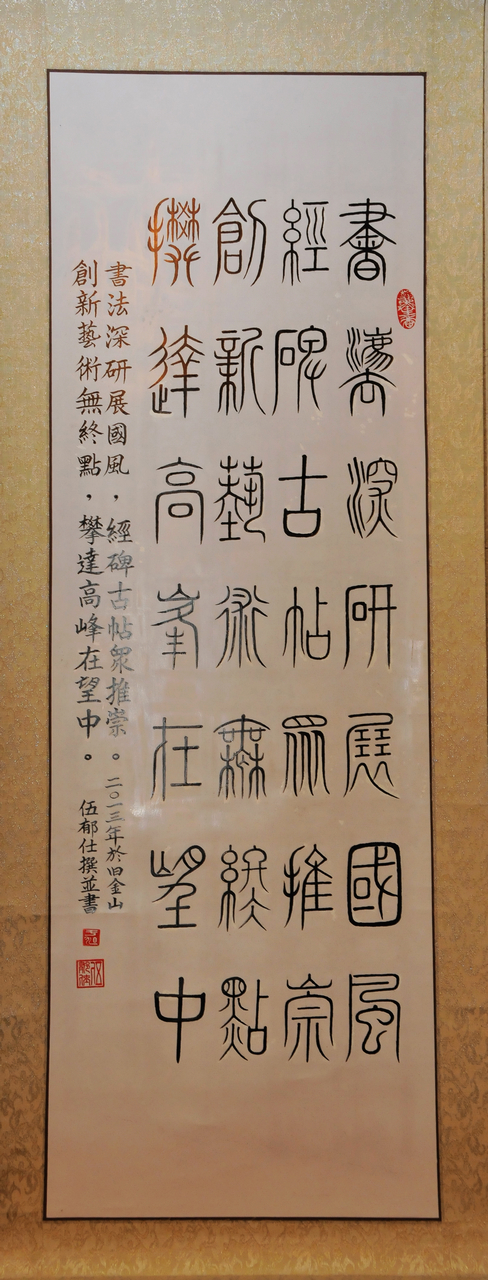 書灋深研展國風
經碑古帖眾推崇
創新藝術無終點
攀達高峯在望中
書法深研展國風，經碑古帖眾推崇。二〇一三年於旧金山
創新藝術無終點，攀達高峰在望中。伍郁仕撰並書